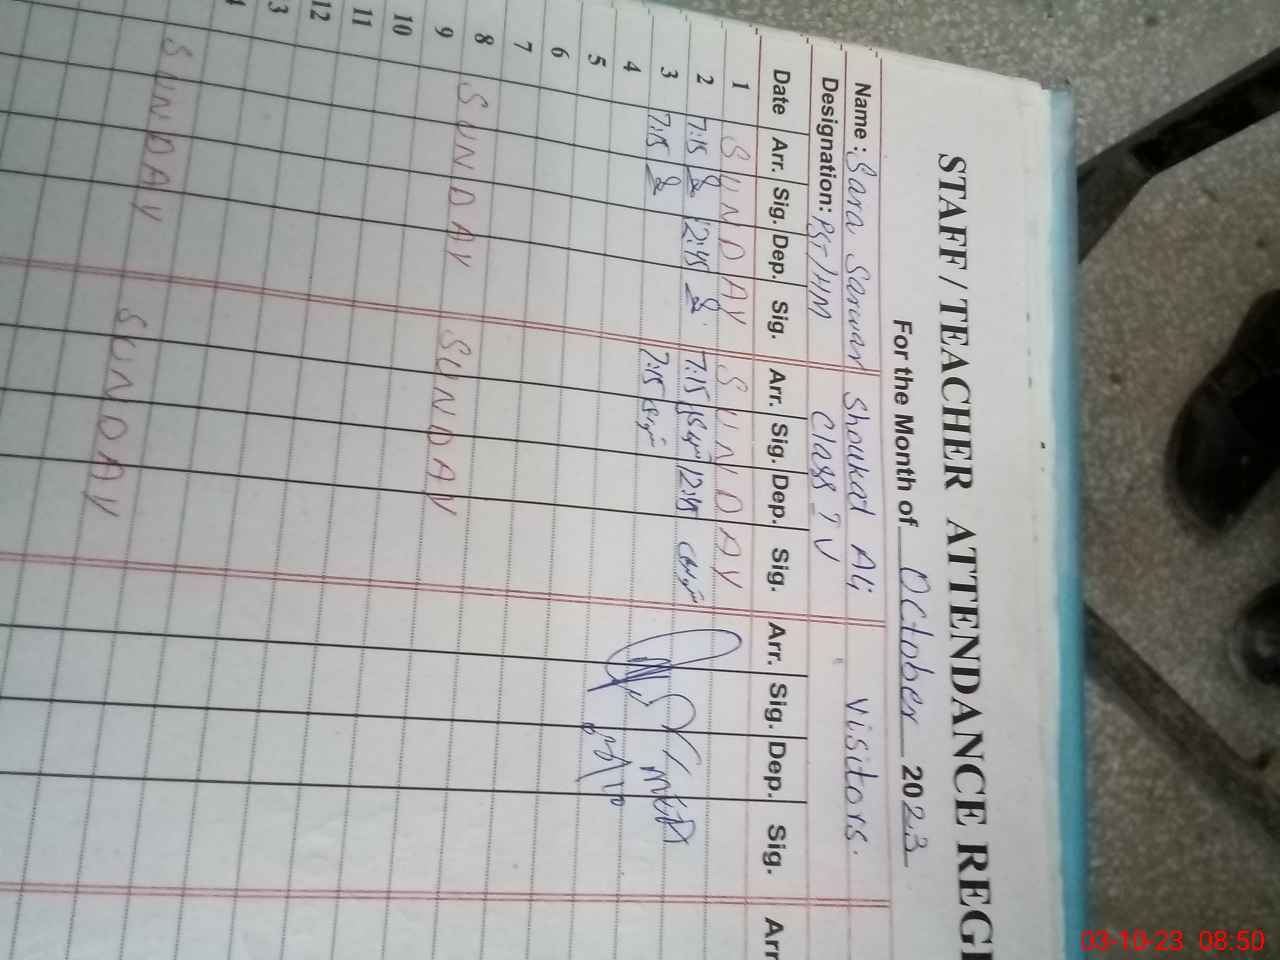 STAFF / TEACHER ATTENDANCE REGI
For the Month of October 2023
Name : Sara Serwar Shoukat Ali Visitors.
Designation: PST/HM Class IV
Date Arr. Sig. Dep. Sig. Arr. Sig. Dep. Sig. Arr. Sig. Dep. Sig. Arr
1 SUNDAY SUNDAY
2 7:15 12:45 7:15 12:45
3 7:15 7:15
4
5
6
7
8 SUNDAY SUNDAY
9
10
11
12
13
14
SUNDAY SUNDAY
03-10-23 08:50